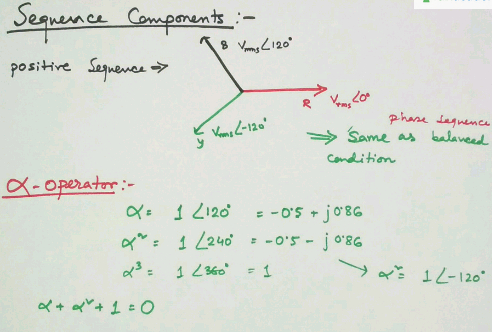 Sequence Components :-
B Vrms∠120°
positive Sequence ⇒
R Vrms∠0°
y Vrms∠-120°
phase sequence
⇒ Same as balanced
condition
α-operator:-
α = 1∠120° = -0.5 + j0.86
α² = 1∠240° = -0.5 - j0.86
α³ = 1∠360° = 1
α² = 1∠-120°
α + α² + 1 = 0